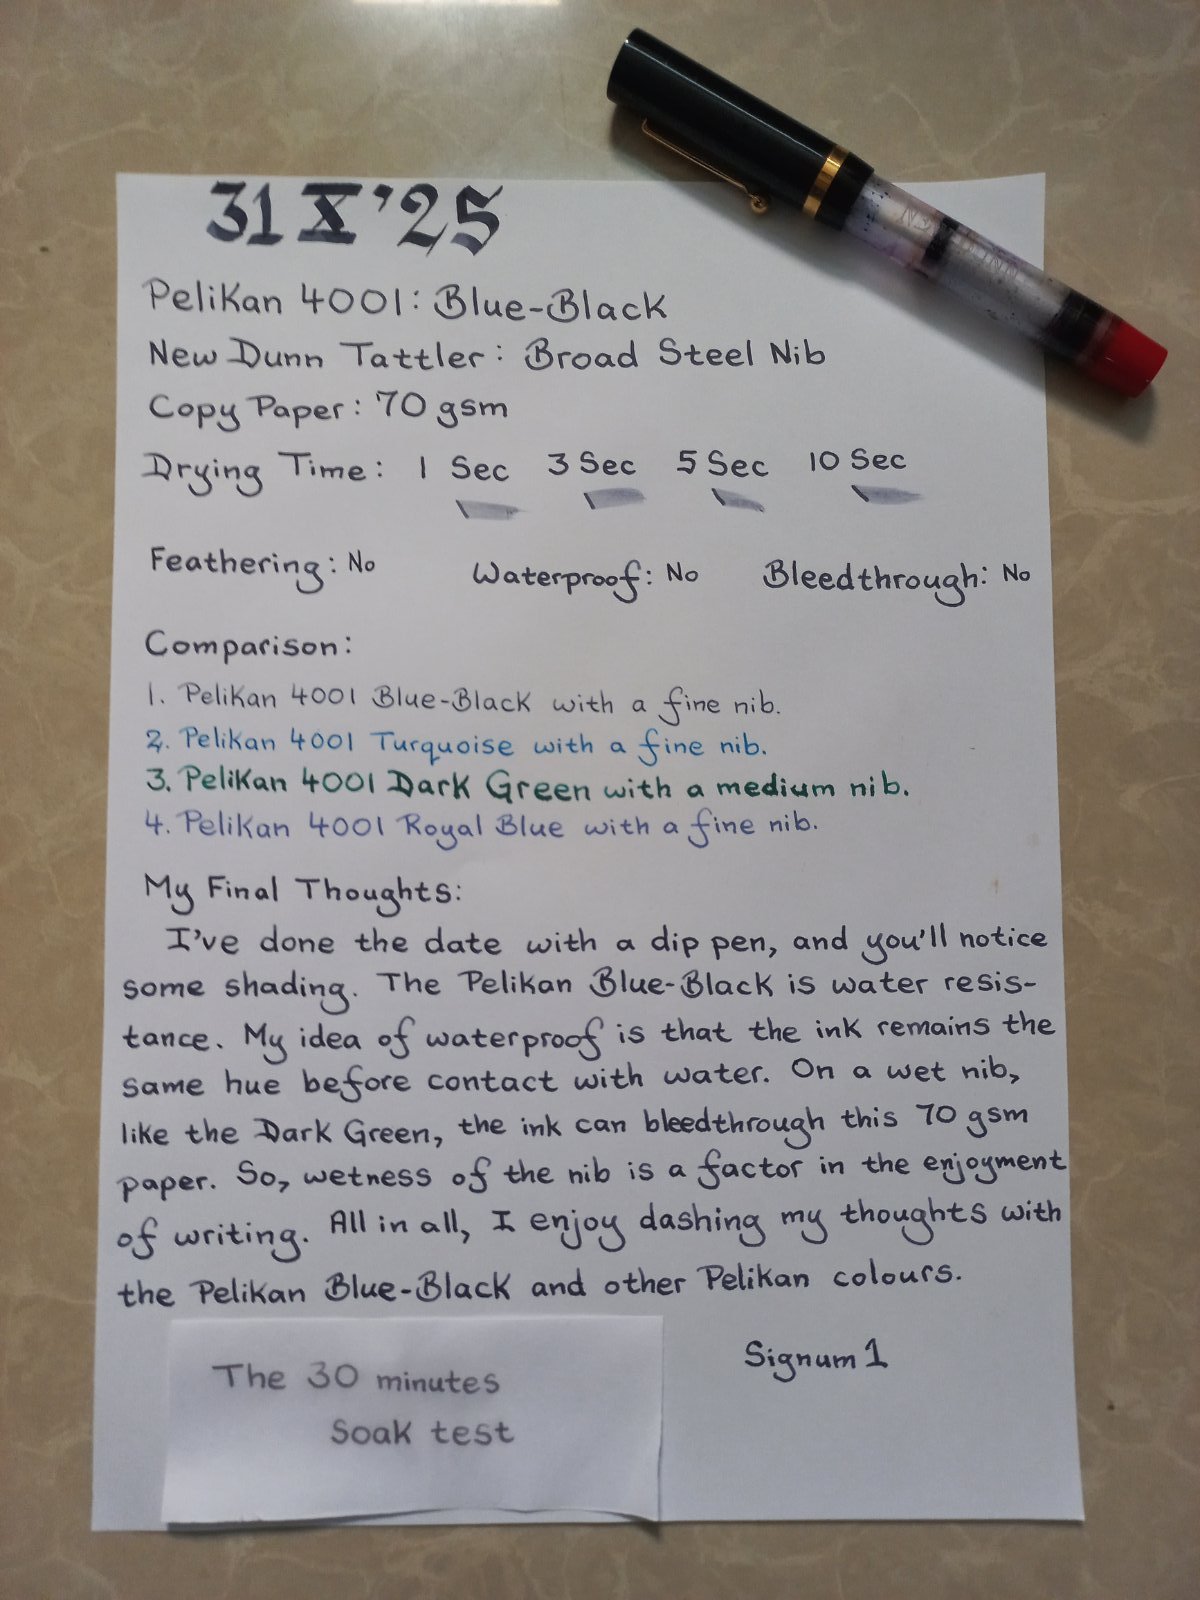 31 X '25
Pelikan 4001: Blue-Black
New Dunn Tattler: Broad Steel Nib
Copy Paper: 70 gsm
Drying Time: 1 Sec 3 Sec 5 Sec 10 Sec
Feathering: No Waterproof: No Bleedthrough: No
Comparison:
1. Pelikan 4001 Blue-Black with a fine nib.
2. Pelikan 4001 Turquoise with a fine nib.
3. Pelikan 4001 Dark Green with a medium nib.
4. Pelikan 4001 Royal Blue with a fine nib.
My Final Thoughts:
I've done the date with a dip pen, and you'll notice
some shading. The Pelikan Blue-Black is water resis-
tance. My idea of waterproof is that the ink remains the
same hue before contact with water. On a wet nib,
like the Dark Green, the ink can bleedthrough this 70 gsm
paper. So, wetness of the nib is a factor in the enjoyment
of writing. All in all, I enjoy dashing my thoughts with
the Pelikan Blue-Black and other Pelikan colours.
Signum 1
The 30 minutes
Soak test